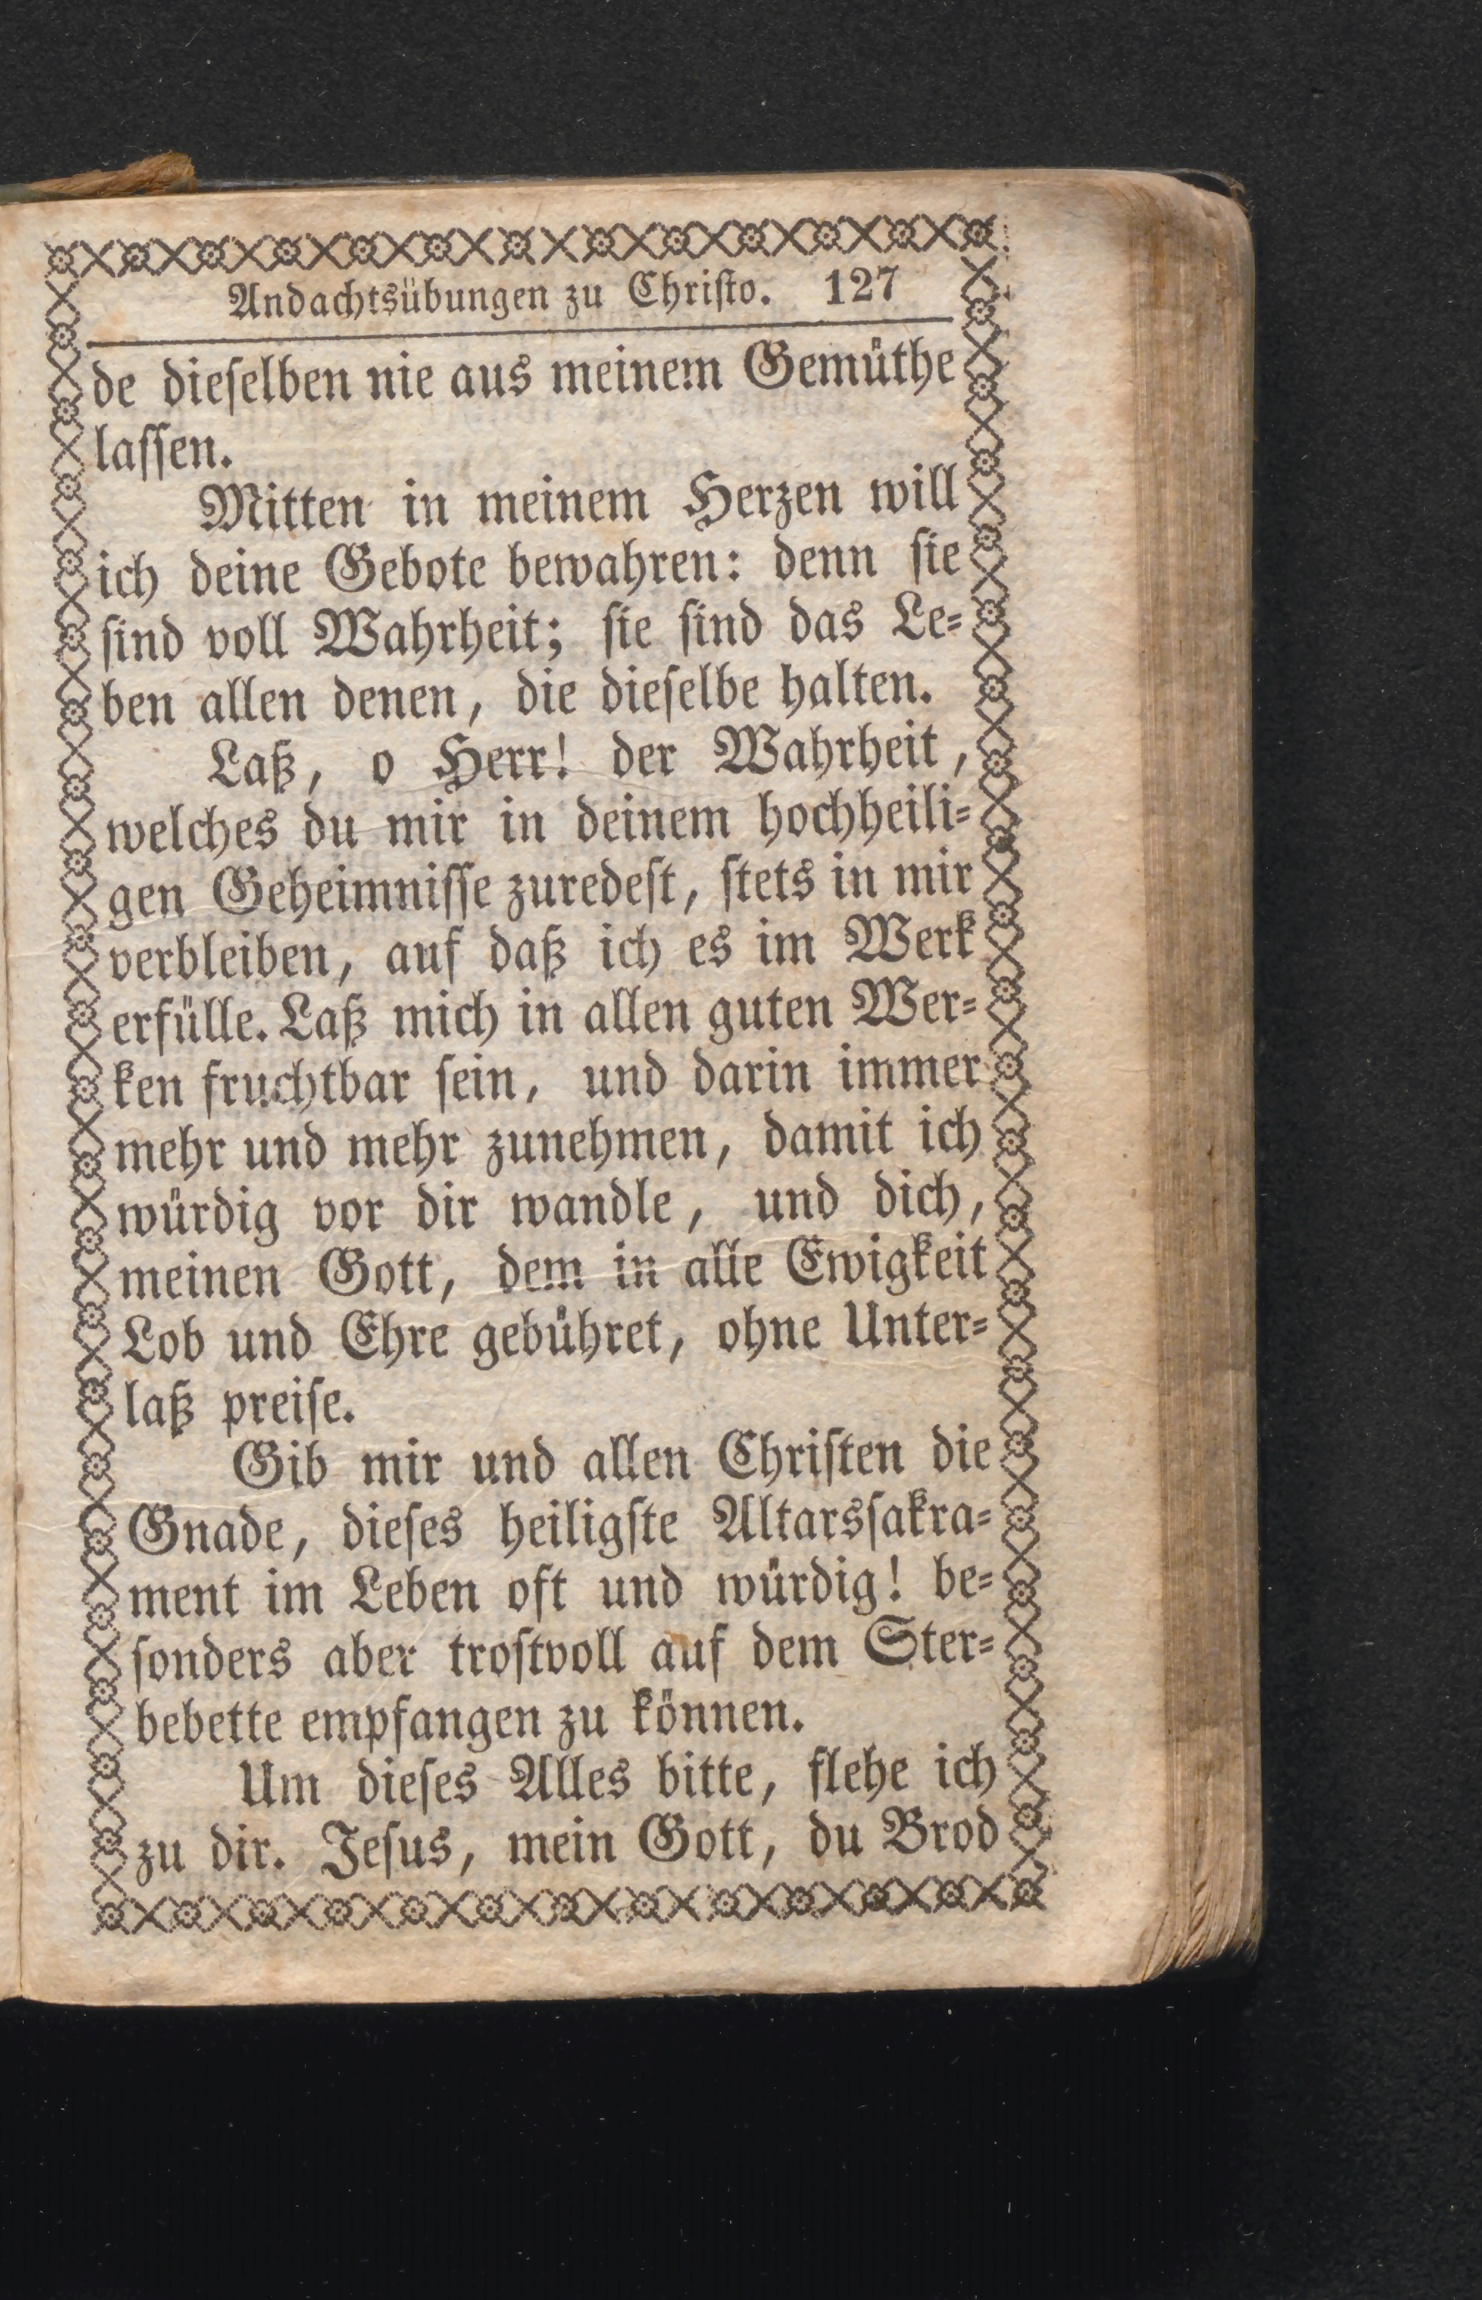 Andachtsübungen zu Christo. 127
de dieselben nie aus meinem Gemüthe
lassen.
Mitten in meinem Herzen will
ich deine Gebote bewahren: denn sie
sind voll Wahrheit; sie sind das Le-
ben allen denen, die dieselbe halten.
Laß, o Herr! der Wahrheit,
welches du mir in deinem hochheili-
gen Geheimnisse zuredest, stets in mir
verbleiben, auf daß ich es im Werk
erfülle. Laß mich in allen guten Wer-
ken fruchtbar sein, und darin immer
mehr und mehr zunehmen, damit ich
würdig vor dir wandle, und dich,
meinen Gott, dem in alle Ewigkeit
Lob und Ehre gebühret, ohne Unter-
laß preise.
Gib mir und allen Christen die
Gnade, dieses heiligste Altarssakra-
ment im Leben oft und würdig! be-
sonders aber trostvoll auf dem Ster-
bebette empfangen zu können.
Um dieses Alles bitte, flehe ich
zu dir. Jesus, mein Gott, du Brod